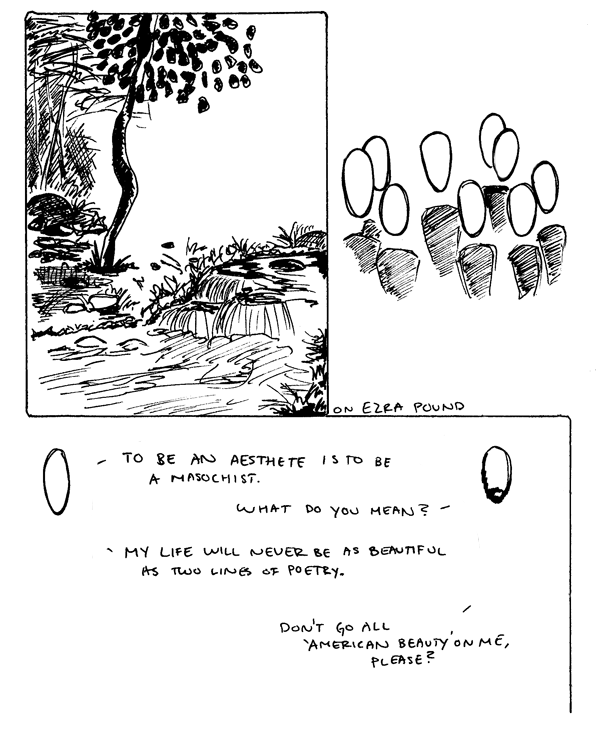 ON EZRA POUND
– TO BE AN AESTHETE IS TO BE
A MASOCHIST.
WHAT DO YOU MEAN? –
` MY LIFE WILL NEVER BE AS BEAUTIFUL
AS TWO LINES OF POETRY.
DON'T GO ALL
'AMERICAN BEAUTY' ON ME,
PLEASE?